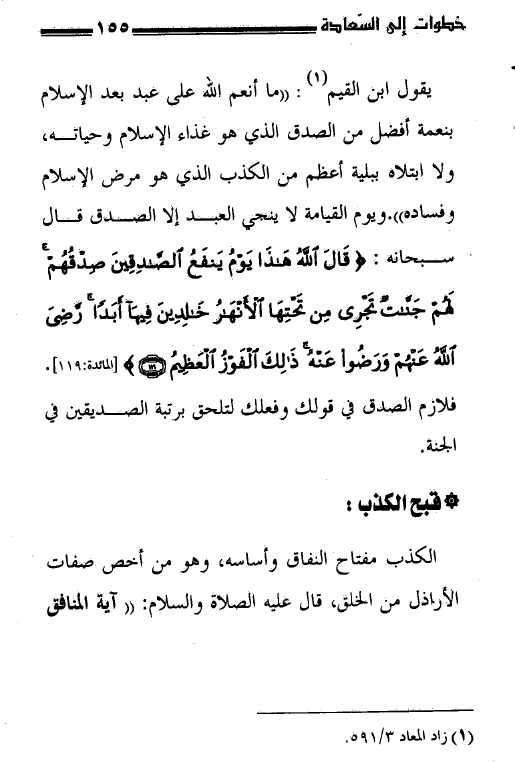 خطوات إلى السّعادة ١٥٥
يقول ابن القيم(١) : ((ما أنعم الله على عبد بعد الإسلام
بنعمة أفضل من الصدق الذي هو غذاء الإسلام وحياتـــه،
ولا ابتلاه ببلية أعظم من الكذب الذي هو مرض الإسلام
وفساده)).ويوم القيامة لا ينجي العبـــد إلا الصـــدق قـــال
ســـبحانه : ﴿ قَالَ ٱللَّهُ هَـٰذَا يَوْمُ يَنفَعُ ٱلصَّـٰدِقِينَ صِدْقُهُمْ ۚ
لَهُمْ جَنَّـٰتٌ تَجْرِى مِن تَحْتِهَا ٱلْأَنْهَـٰرُ خَـٰلِدِينَ فِيهَآ أَبَدًا ۚ رَّضِىَ
ٱللَّهُ عَنْهُمْ وَرَضُوا۟ عَنْهُ ۚ ذَٰلِكَ ٱلْفَوْزُ ٱلْعَظِيمُ ١١٩ ﴾ [المائدة:١١٩].
فلازم الصدق في قولك وفعلك لتلحق برتبة الصـــديقين في
الجنة.
۞ قبح الكذب :
الكذب مفتاح النفاق وأساسه، وهو من أخص صفات
الأراذل من الخلق، قال عليه الصلاة والسلام: (( آية المنافق
(١) زاد المعاد ٥٩١/٣.